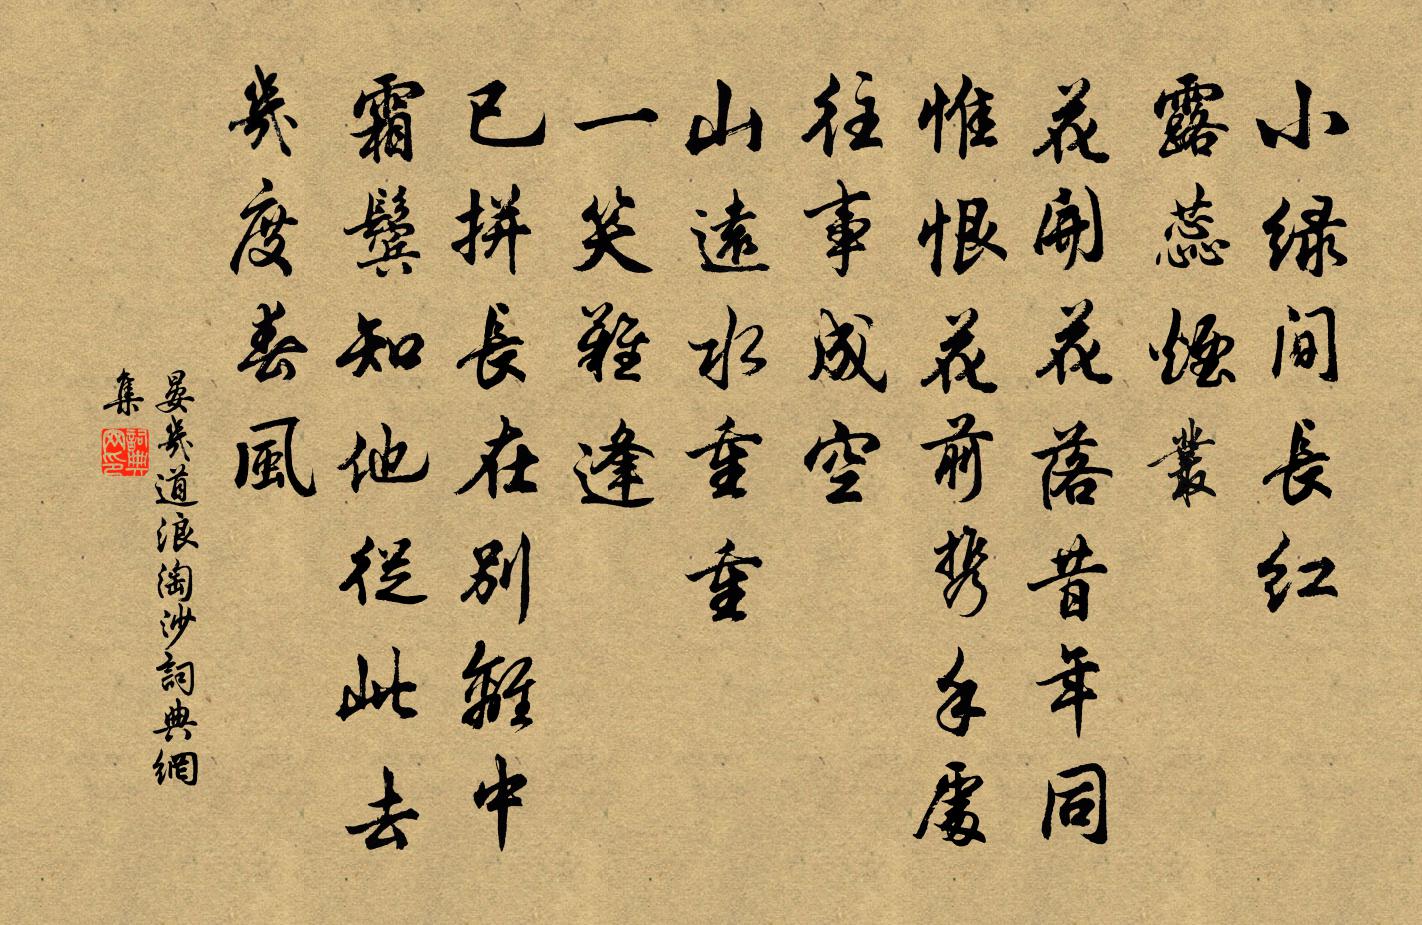 小绿间長红
露蕊煙叢
花開花落昔年同
惟恨花前携手處
往事成空
山遠水重重
一笑難逢
已拼長在别離中
霜鬓知他從此去
幾度春風
晏幾道浪淘沙詞典網
集
詞典
网印